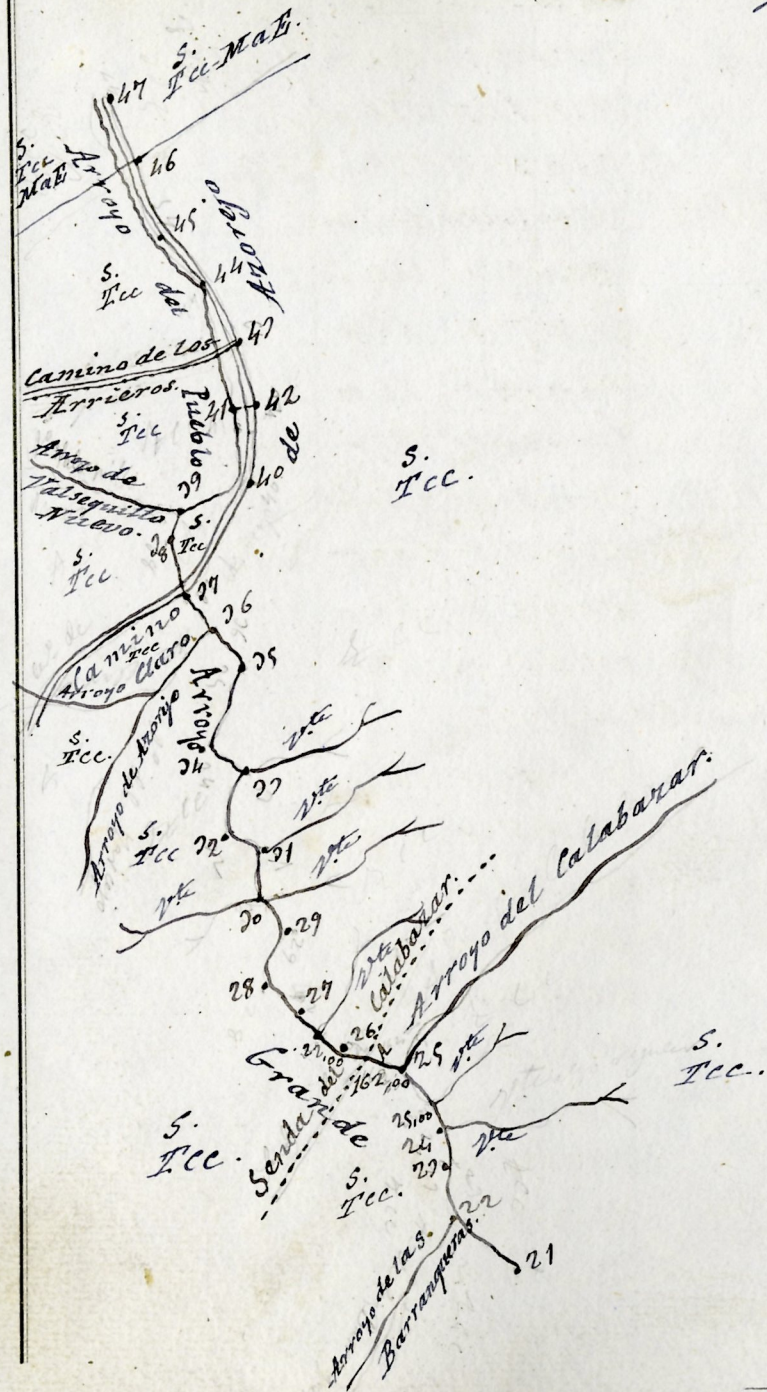 S.
Tcc-MaE.
47
S.
Tcc
MaE
46
Arroyo
45
44
S.
Tcc
del
43
Camino de los
Arrieros.
Pueblo
41
42
de
S.
Tcc
Arroyo de
Valsequillo
Nuevo.
39
40
S.
Tcc.
38
S.
Tcc
S.
Tcc
37
Camino
Tcc
36
Arroyo Claro
35
Arroyo
S.
Tcc.
Arroyo de
34
Vte
33
Vte
S.
Tcc
32
31
Vte
Vte
30
29
28
27
Vte
Calabazar.
Arroyo del Calabazar.
22,00
26
25
162,00
Vte
Grande
Senda del
S.
Tcc.
25,00
24
Vte
23
S.
Tcc.
S.
Tcc.
22
21
Arroyo de las
Barranqueras.